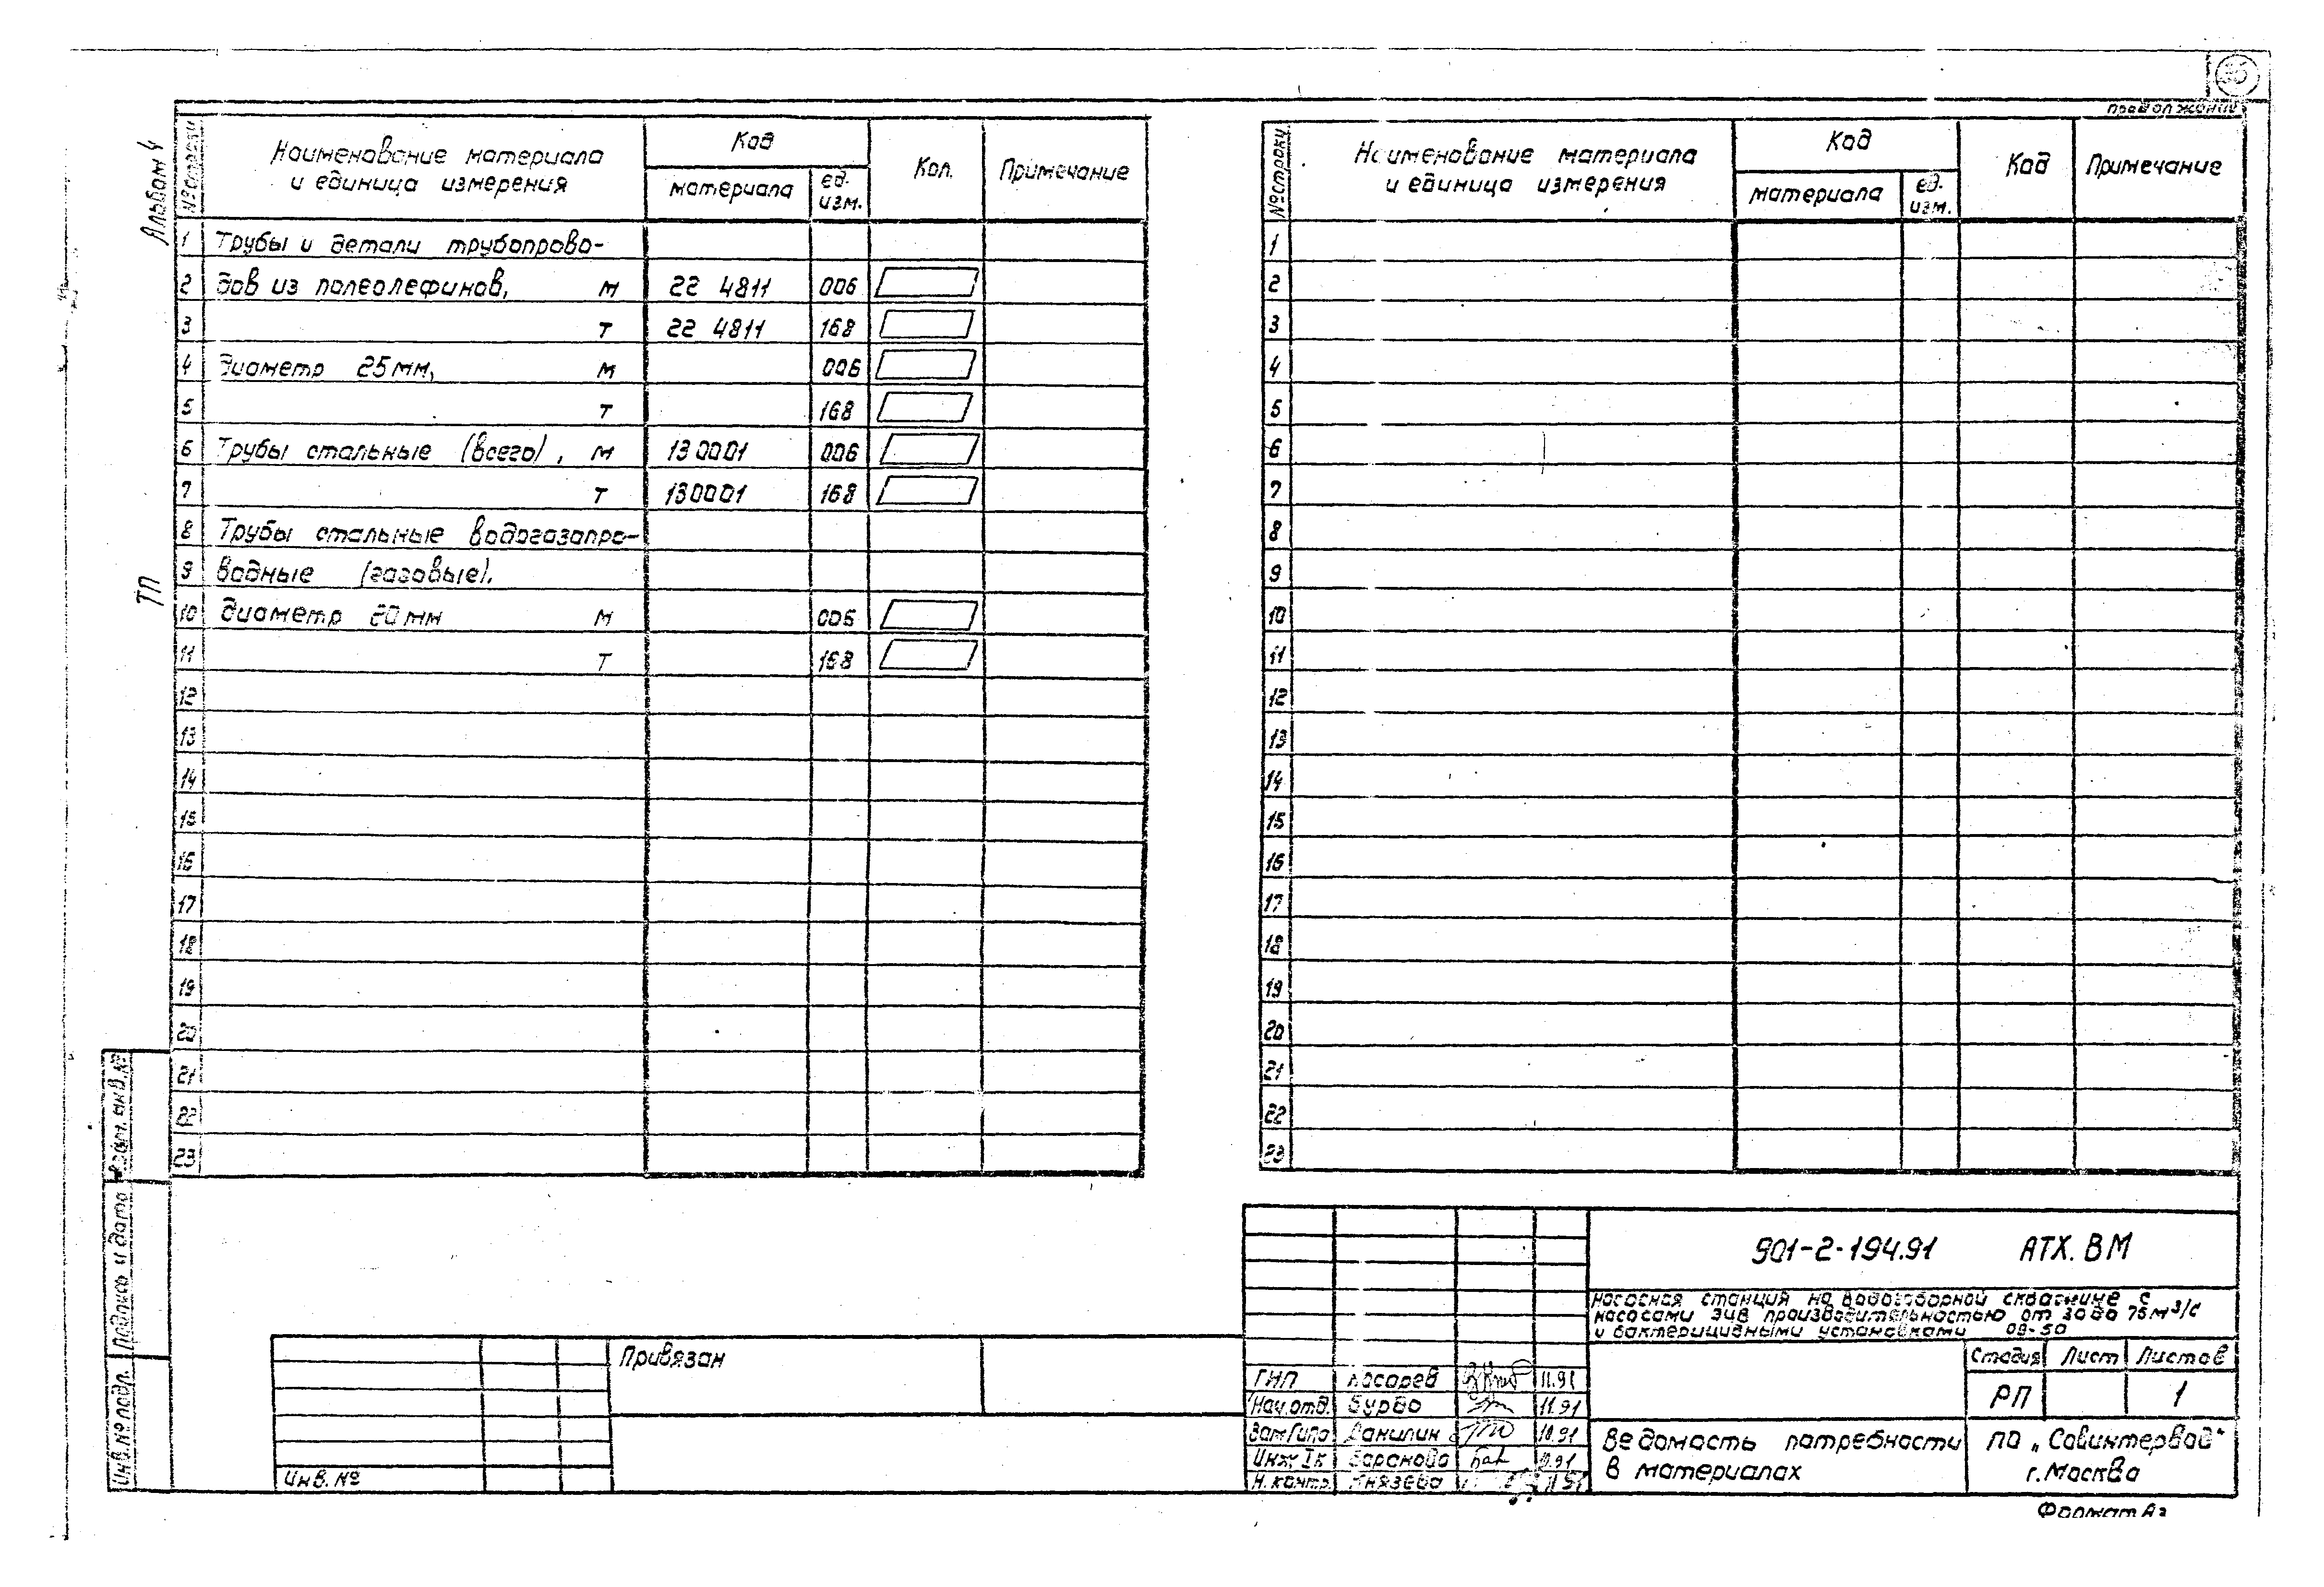 продолжение
Альбом 4
ТП
№ строки
Наименование материала
и единица измерения
Код
материала
ед.
изм.
Кол.
Примечание
1 Трубы и детали трубопрово-
2 дов из полеолефинов, м 22 4811 006
3 т 22 4811 168
4 диаметр 25 мм, м 006
5 т 168
6 Трубы стальные (всего), м 130001 006
7 т 130001 168
8 Трубы стальные водогазопро-
9 водные (газовые).
10 диаметр 20 мм м 006
11 т 168
12
13
14
15
16
17
18
19
20
21
22
23
№ строки
Наименование материала
и единица измерения
Код
материала
ед.
изм.
Код
Примечание
1
2
3
4
5
6
7
8
9
10
11
12
13
14
15
16
17
18
19
20
21
22
23
Взам. инв. №
Подпись и дата
Инв. № подл.
Привязан
Инв. №
901-2-194.91 АТХ. ВМ
Насосная станция на водозаборной скважине с
насосами ЭЦВ производительностью от 30 до 75 м³/с
и бактерицидными установками ОВ-50
Стадия Лист Листов
РП 1
ГИП Косарев 11.91
Нач.отд. Бурдо 11.91
Зам Гипа Данилин 10.91
Инж. Iк Баранова 10.91
Н. контр. Князева 11.91
Ведомость потребности
в материалах
ПО „Совинтервод"
г. Москва
Формат А3